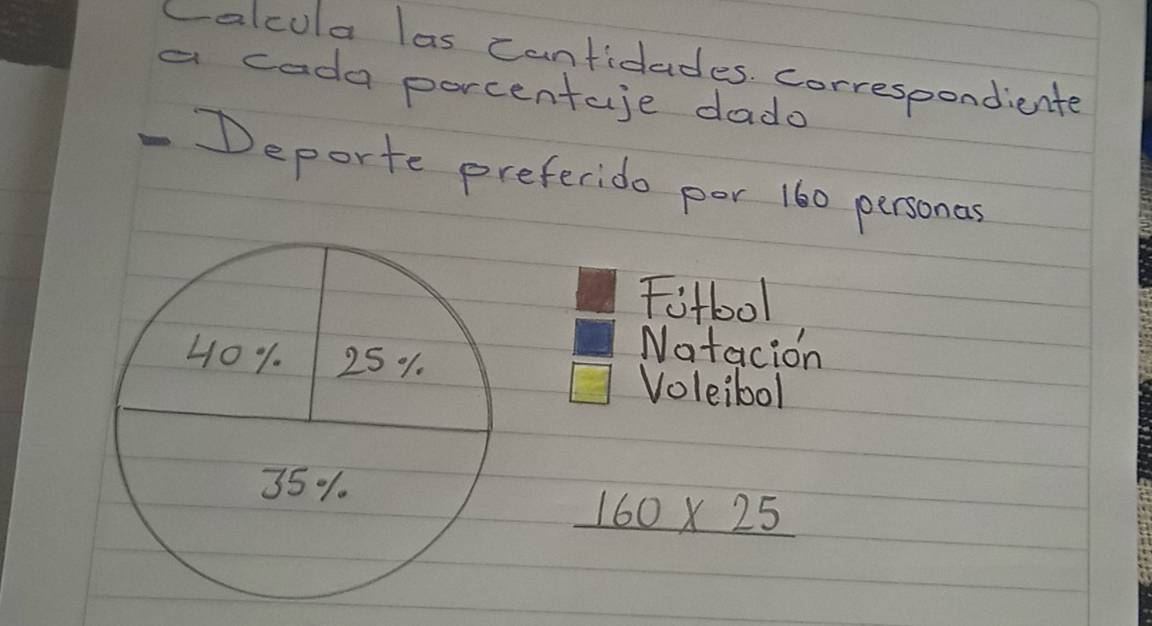 Calcula las cantidades. correspondiente
a cada porcentaje dado
- Deporte preferido por 160 personas
40% 25%
35%
Fútbol
Natación
Voleibol
160 x 25